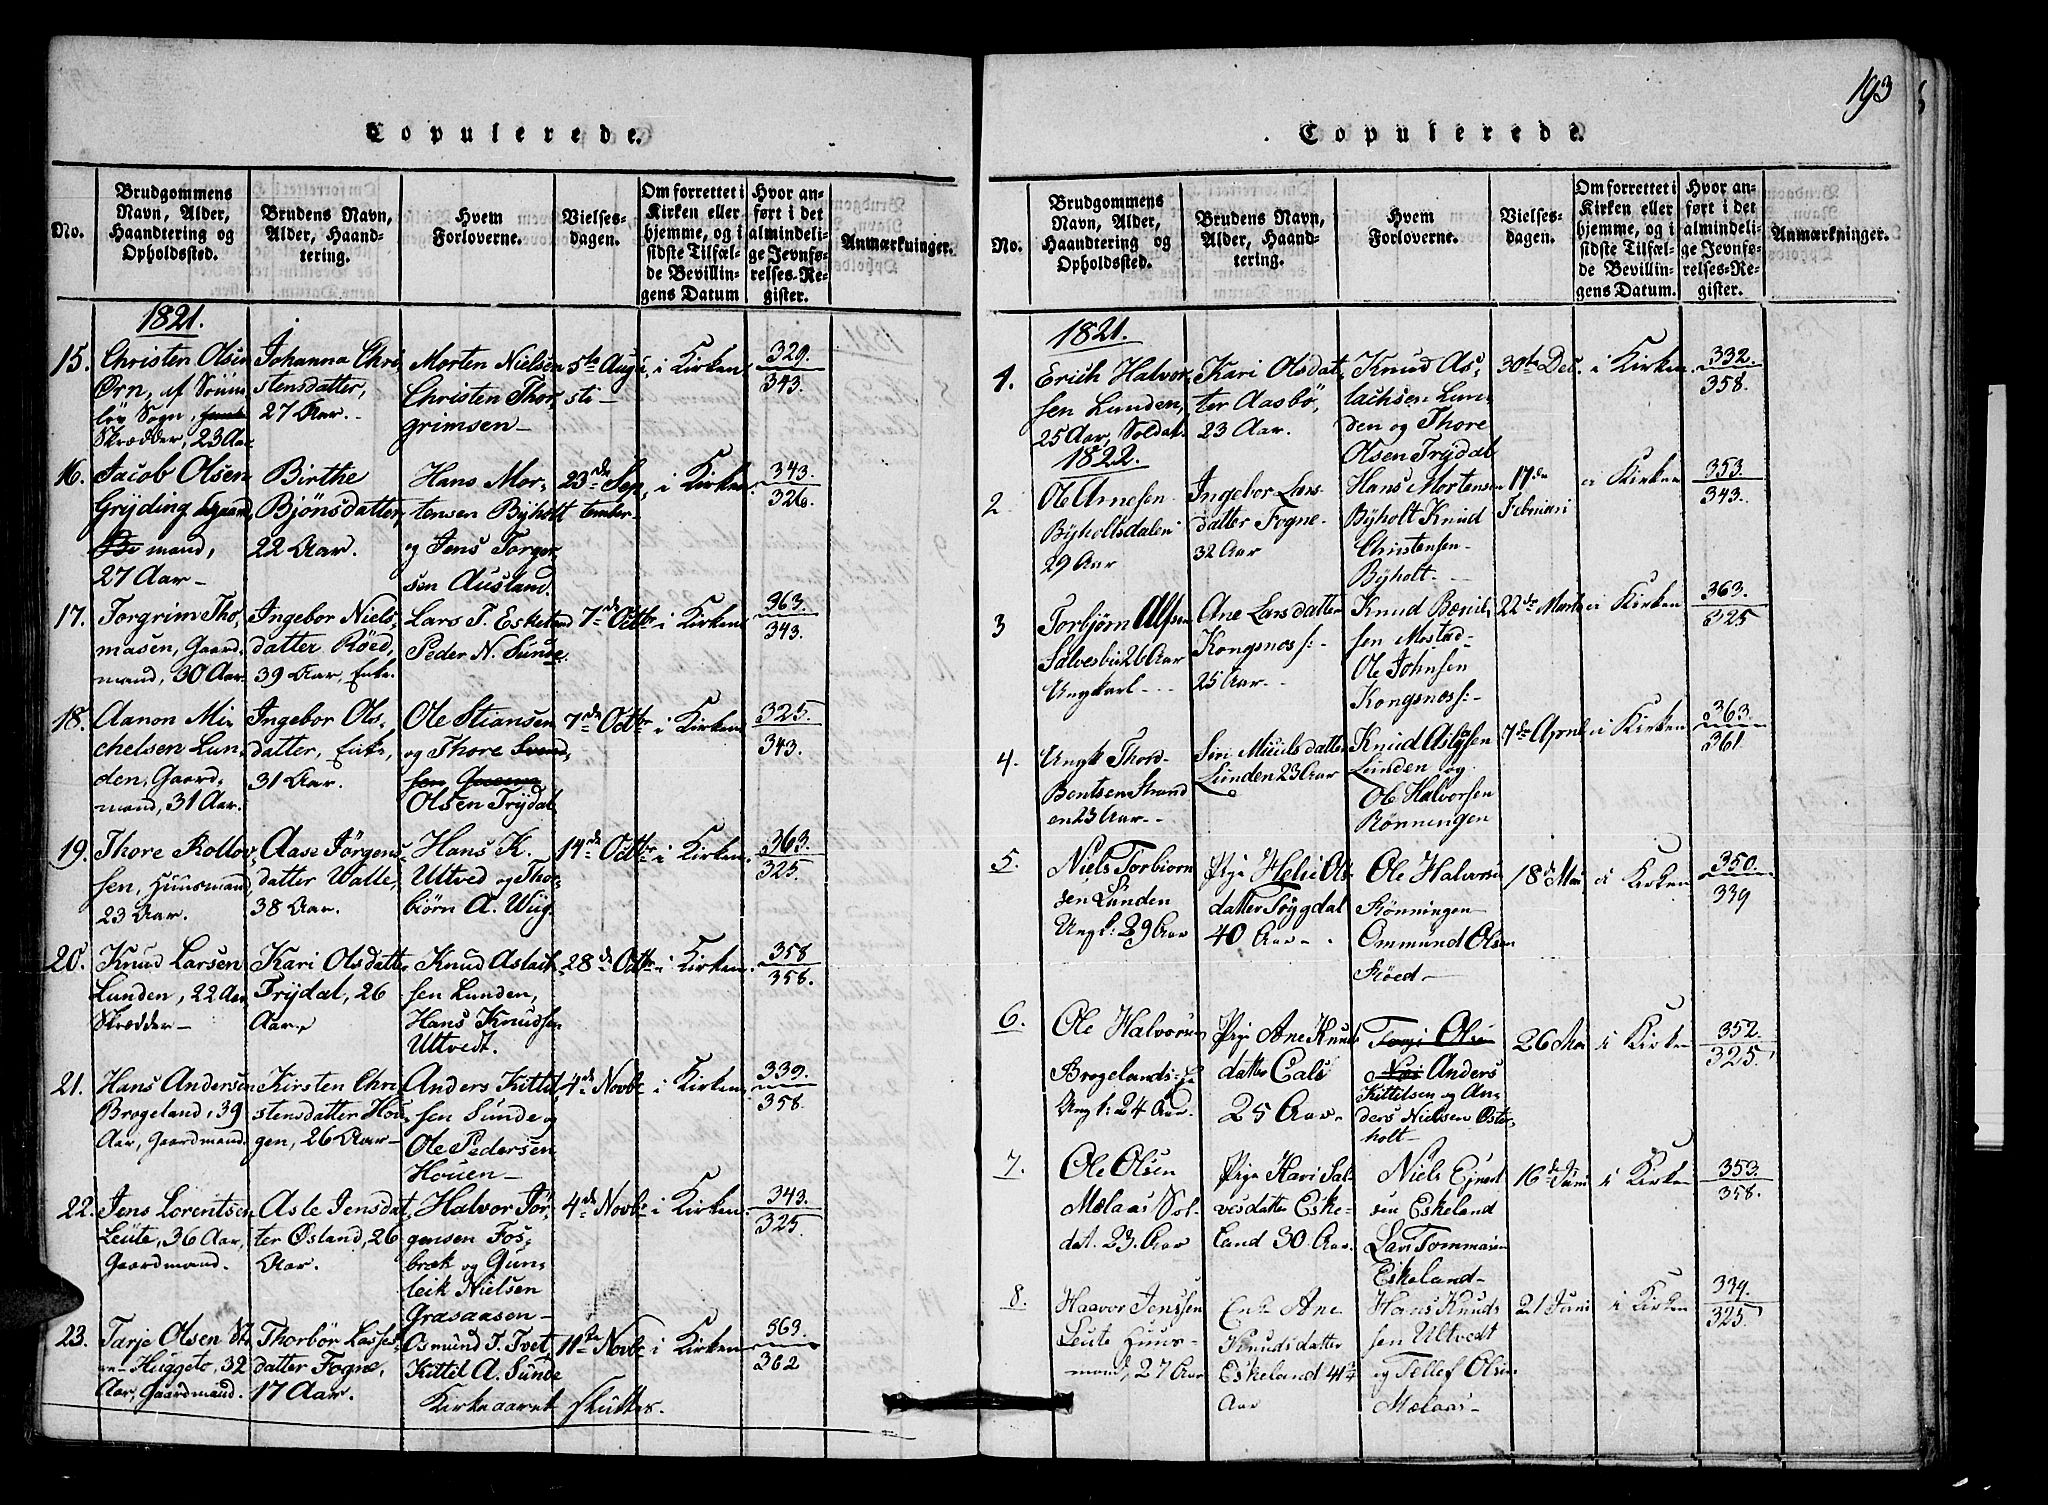 Copulerede.
No.
Brudgommens
Navn, Alder,
Haandtering og
Opholdssted.
Brudens Navn,
Alder, Haand-
tering.
Hvem
Forloverne.
Vielses-
dagen.
Om forrettet i
Kirken eller
hjemme, og i
sidste Tilfæl-
de Bevillin-
gens Datum
Hvor an-
ført i det
almindeli-
ge Jevnfø-
relses-Re-
gister.
Anmærkninger.
1821.
15.
Christen Olsen
Ørn, af
Sogn,
Skrædder, 23 Aar
Johanna Chri
stensdatter,
27 Aar.
Morten Nielsen
Christen Thor,
grimsen
5te Augu,
sti
i Kirken
329.
343.
16.
Jacob Olsen
Gryding Gaard,
mand,
27 Aar
Birthe
Bjönsdatter,
22 Aar.
Hans Mor-
tensen Byholt
og Jens Torger,
sen Ausland.
23de Sep,
tember
i Kirken
343.
326.
17.
Torgrim Tho,
masen, Gaard,
mand, 30 Aar.
Ingebor Niels,
datter Röed,
39 Aar, Enke.
Lars T. Eskeland
Peder N. Sunde.
7de Octbr
i Kirken
363.
343.
18.
Aanon Mi,
chelsen Lun,
den, Gaard,
mand, 31 Aar.
Ingebor Ols,
datter, Enke,
31 Aar.
Ole Stiansen
og Thore Svend,
sen
Olsen Trydal
7de Octbr
i Kirken
325.
343.
19.
Thore Rollov,
sen, Huusmand
23 Aar.
Aase Jörgens,
datter Walle,
38 Aar.
Hans K.
Ultved og Thor,
biörn A. Wiig.
14de Octbr
i Kirken
363.
325.
20.
Knud Larsen
Lunden, 22 Aar,
Skrædder
Kari Olsdatter
Trydal, 26
Aar.
Knud Aslak,
sen Lunden,
Hans Knudsen
Ultvedt.
28de Octbr
i Kirken
358
358.
21.
Hans Andersen
Brogeland, 39
Aar, Gaardmand.
Kirsten Chri,
stensdatter Hou,
gen, 26 Aar
Anders Kittil,
sen Sunde og
Ole Pedersen
Houen
4de Novbr
i Kirken
339.
358.
22.
Jens Lorentsen
Leüte, 36 Aar,
Gaardmand.
Asle Jensdat,
ter Øsland, 26
Aar.
Halvor Jör,
gensen Fos,
bræk og Gun,
leik Nielsen
Grasaasen
4de Novbr
i Kirken
343.
325.
23.
Tarje Olsen
Huggeto, 32
Aar, Gaardmand.
Thorbör Lasses,
datter Fogne,
17 Aar.
Osmund T. Tvet,
Kittil A. Sunde
11te Novbr
i Kirken
363.
362
Kirkeaaret sluttes.
193
Copulerede.
No.
Brudgommens
Navn, Alder,
Haandtering og
Opholdssted.
Brudens Navn,
Alder, Haand-
tering.
Hvem
Forloverne.
Vielses-
dagen.
Om forrettet i
Kirken eller
hjemme, og i
sidste Tilfæl-
de Bevillin-
gens Datum.
Hvor an-
ført i det
almindeli-
ge Jevnfø-
relses-Re-
gister.
Anmærkninger.
1821.
1.
Erich Halvor,
sen Lunden,
25 Aar, Soldat.
Kari Olsdat,
ter Aasbö,
23 Aar.
Knud As,
lachsen Lun,
den og Thore
Olsen Trydal
30te Dec.
i Kirken
332.
358.
1822.
2
Ole Arnesen
Byholtsdalen
29 Aar
Ingebor Lars
datter Fogne
32 Aar
Hans Mortensen
Byholt Knud
Christensen
Byholt.
17de
Februari
i Kirken
353.
343.
3
Torbjörn Alfsen
26 Aar
Ungkarl
Ane Larsdatter
Kongsnoss:
25 Aar
Knud
sen Mostad
Ole Johnsen
Kongsnoss:
22de Marts
i Kirken
363.
325
4.
Ungk Thord
Bentsen Strand
en 23 Aar
Siri datter
Lunden 23 Aar
Knud
Lunden og
Ole Halvorsen
Rönningen
7de April
i Kirken
363.
361
5.
Niels Torbiorn
sen Lunden
Ungk: 29 Aar
Pige Helie Ols
datter
40 Aar
Ole Halvors
Rönningen
Ommund Olsen
Röed
18de Mai
i Kirken
350.
339
6.
Ole Halvorsen
Brogelands
Ungk: 24 Aar.
Pige Ane Knuds
datter
25 Aar
Olsen
Anders
Kittilsen og An,
ders Nielsen Øster
holt
26 Mai
i Kirken
352.
325.
7.
Ole Olsen
Mælaas Sol,
dat. 23. Aar
Pige Kari Sal,
vesdatter Eske,
land 30 Aar.
Niels
sen Eskeland
Lars Tommasen
Eskeland
16de Juni
i Kirken
353.
358.
8.
Haavor Jenssen
Leute Huus,
mand, 27 Aar
Enke Ane
Knudsdatter
Eskeland 41¾
Aar
Hans Knud
sen Ultvedt
og Tellef Olsen
Mælaas
21 Juni
i Kirken
339.
325.